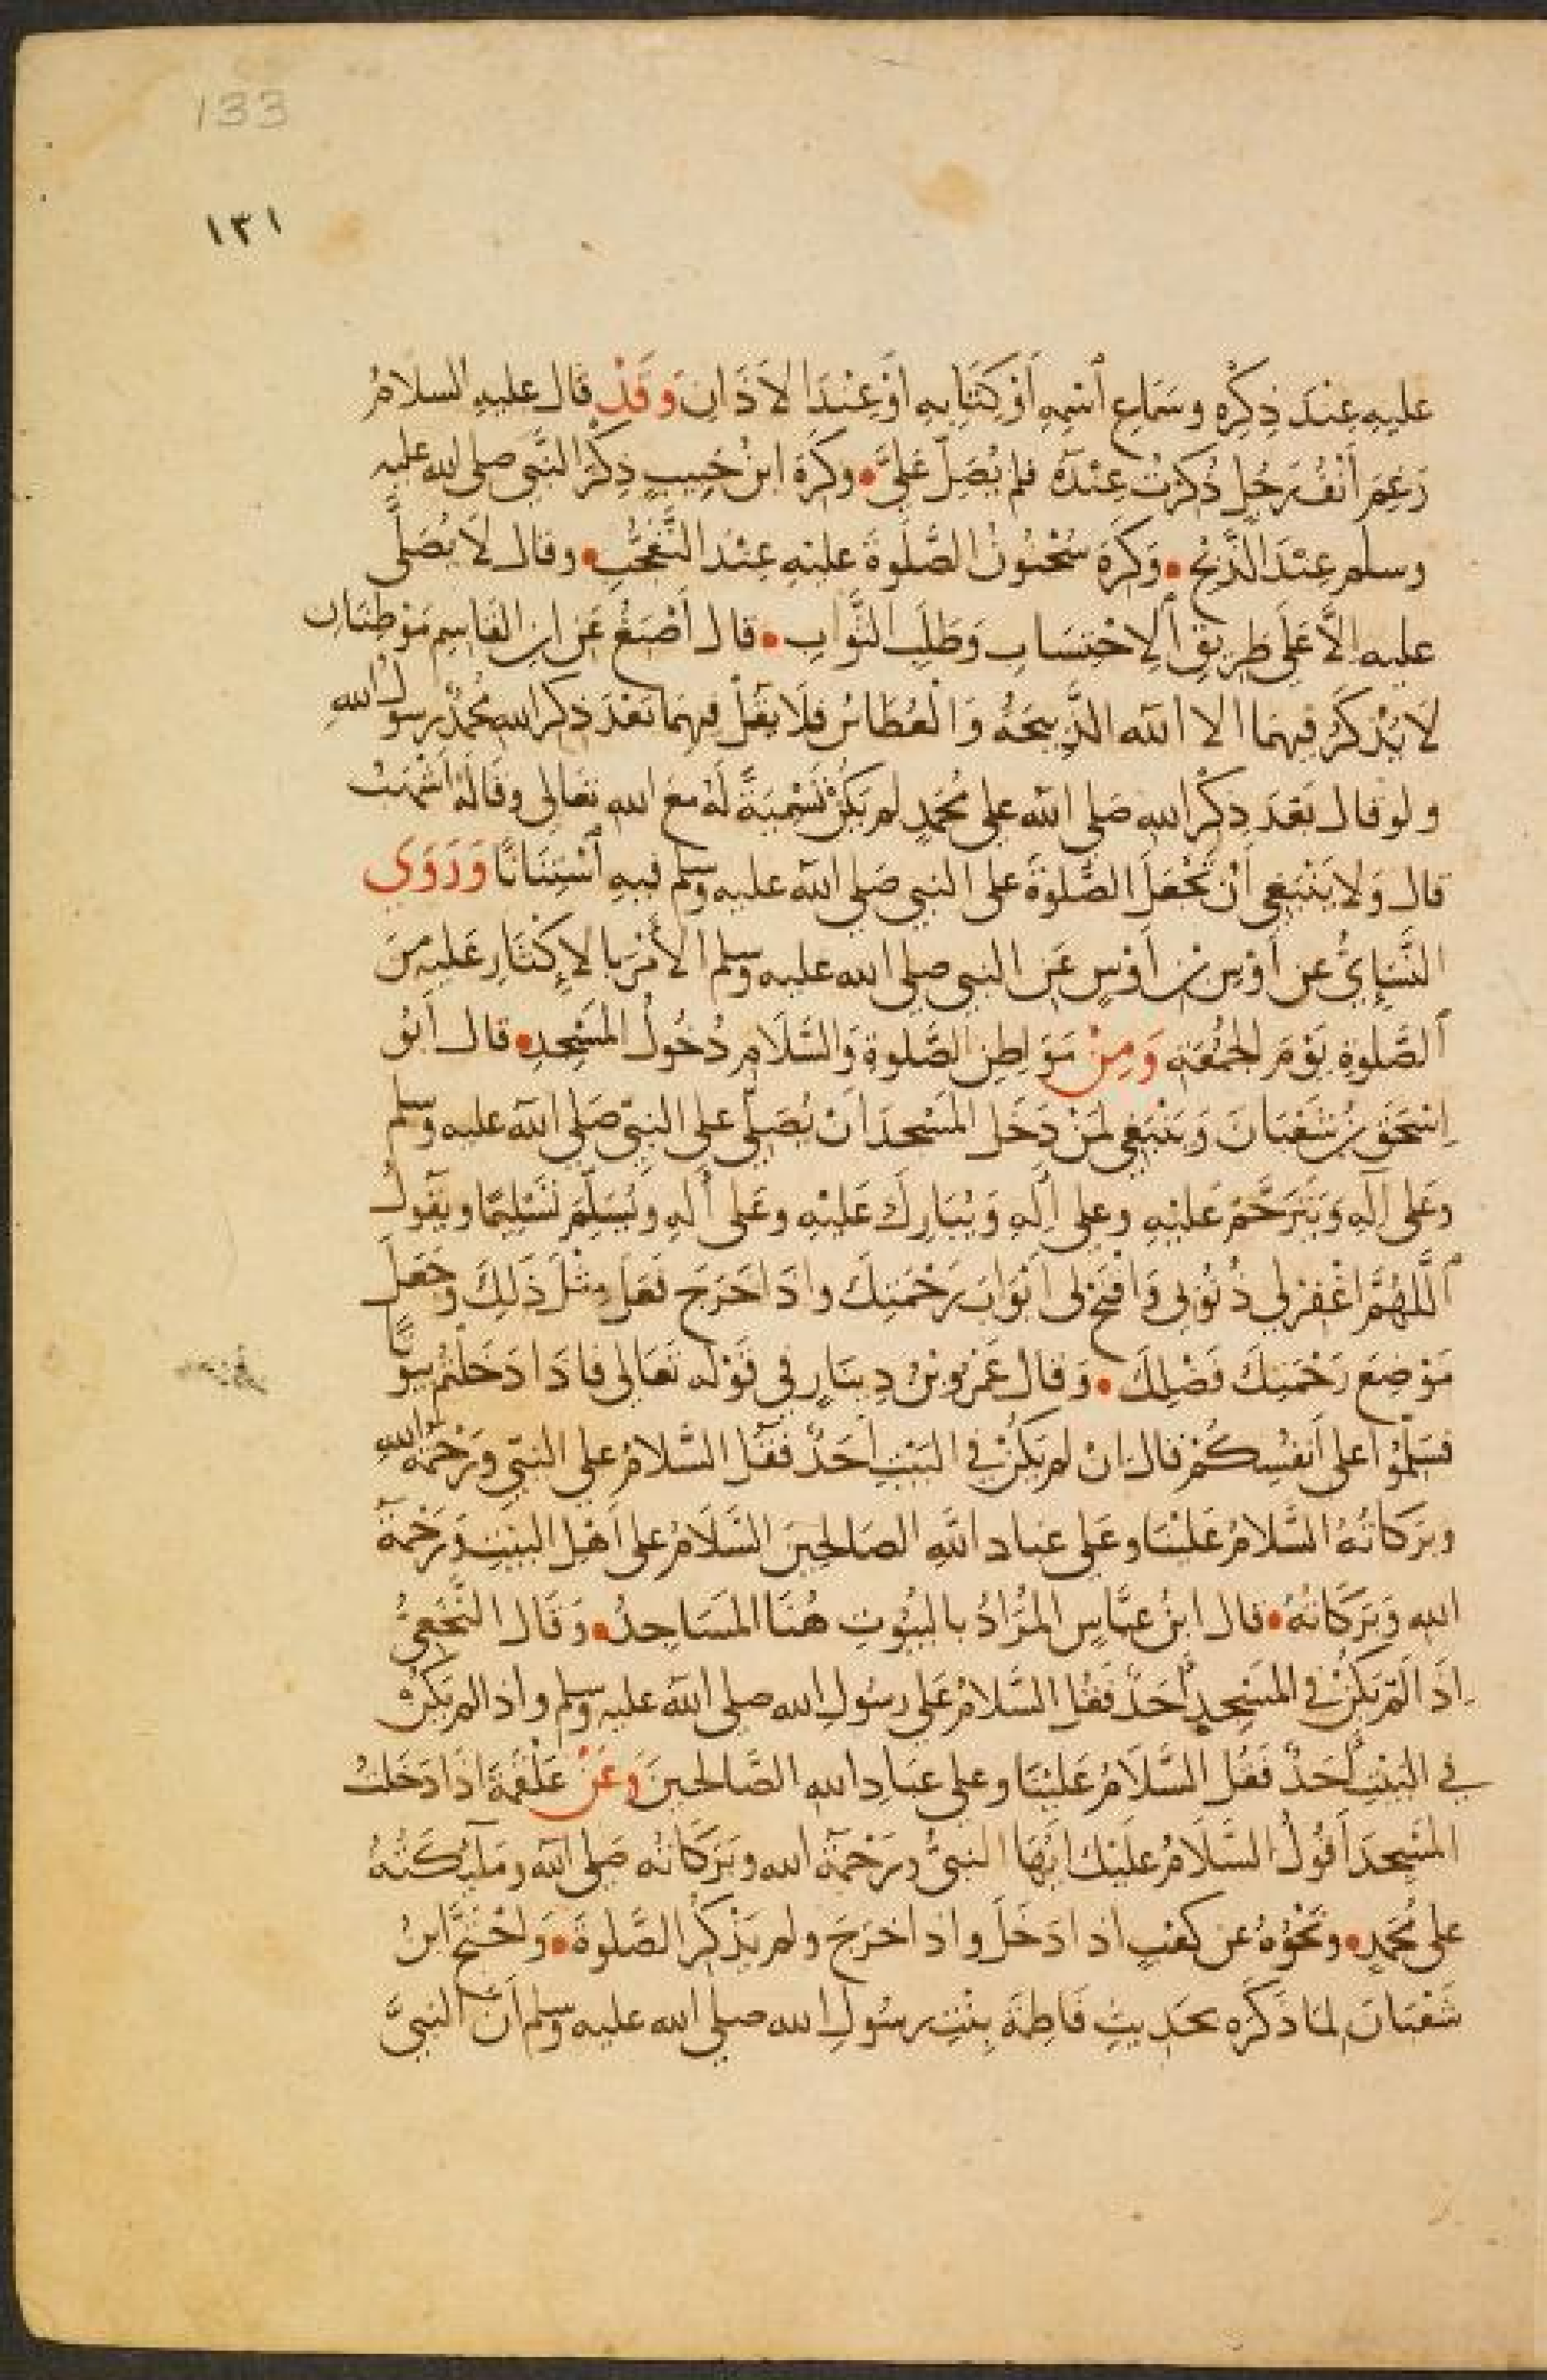 133
١٣١
عليهِ عِنْدَ ذِكْرِه وسَمَاعِ ٱسْمِهِ أَوْ كِتَابِهِ أَوْ عِنْدَ الاَذَانِ وَقَدْ قَال عليهِ السلامُ
رَغِمَ أَنْفُ رَجُلٍ ذُكِرْتُ عِنْدَهُ فلم يُصَلِّ عَلَيَّ • وكَرِهَ ابنُ حَبِيبٍ ذِكْرَ النَّبِي صلى الله عليه
وسلم عِنْدَ الذَّبْحِ • وَكَرِهَ سُحْنُونُ الصَّلٰوةَ عليْهِ عِنْدَ التَّعَجُّبِ • وقال لاَ يُصَلَّى
عليه اِلاَّ عَلَى طَرِيقِ ٱلِاحْتِسَابِ وَطَلَبِ الثَّوَابِ • قال أَصْبَغُ عَنِ ابنِ القَاسِمِ مَوْطِنَانِ
لاَ يُذْكَرُ فِيهِمَا الا الله الذَّبِيحَةُ وَالْعُطَاسُ فلَا يَقُلْ فِيهِمَا بَعْدَ ذِكْرِ اللهِ مُحَمَّدٌ رسولُ اللهِ
ولو قال بَعْدَ ذِكْرِ اللهِ صَلى الله على مُحَمَّدٍ لم يَكُنْ تَسْمِيَةً لَهُ مَعَ الله تعَالى وقَالَهُ اَشْهَبُ
قال وَلا يَنْبَغِي أَنْ تُجْعَلَ الصَّلٰوةُ على النبي صَلى الله عليه وسلم فيهِ ٱسْتِنَانًا وَرَوَى
النَّسَاِيُّ عن أَوْسِ بْنِ أَوْسٍ عَنِ النبي صلى الله عليه وسلم الأَمْرَ بالاِكْثَارِ عَلَيْهِ مِنَ
ٱلصَّلٰوةِ يَوْمَ الجمُعَةِ وَمِنْ مَوَاطِنِ الصَّلٰوةِ وَالسَّلَامِ دُخُولُ المَسْجِدِ • قال اَبُو
اِسْحَقَ بْنُ شَعْبَانَ وَيَنْبَغِي لِمَنْ دَخَلَ المَسْجِدَ اَنْ يُصَلِّيَ على النبيّ صَلى الله عليه وسلم
وَعَلى آلِهِ وَيَتَرَحَّمَ عَلَيْهِ وعلى اٰلِهِ وَيُبَارِكَ عَلَيْهِ وعَلى اٰلِهِ وَيُسَلِّمَ تَسْلِيمًا ويَقُولُ
ٱللّٰهُمَّ اغْفِرْ لِي ذُنُوبِي وَافْتَحْ لِي اَبْوَابَ رَحْمَتِكَ واذَا خَرَجَ فَعَلَ مِثْلَ ذَلِكَ وَجَعَلَ
مَوْضِعَ رَحْمَتِكَ فَضْلِكَ • وَقَالَ عَمْرُو بْنُ دِينَارٍ في قَوْلِه تَعَالى فاذَا دَخَلْتُمْ بيُوتًا
فسَلِّمُوا على اَنفُسِكُمْ قال انْ لم يَكُنْ فِي البَيْتِ اَحَدٌ فَقُلِ السَّلامُ على النبيّ وَرَحْمَةُ اللهِ
وَبَرَكَاتُهُ السَّلَامُ عَلَيْنَا وعَلى عِبَادِ اللّٰهِ الصَالحِينَ السَّلَامُ على اَهْلِ البَيْتِ وَرَحْمَةُ
الله وَبَرَكَاتُهُ • قال ابنُ عبَّاسٍ المُرَادُ بالبُيُوتِ هُنَا المَسَاجِدُ • وَقَال النَّخَعِيُّ
اِذَا لَمْ يَكُنْ في المَسْجِدِ أَحَدٌ فَقُلِ السَّلَامُ عَلى رسُولِ الله صلى الله عليه وسلم واذا لم يَكُنْ
فِي البَيْتِ أَحَدٌ فَقُلِ السَّلَامُ عَلَيْنَا وعلى عِبَادِ الله الصَّالحِينَ وعَنْ عَلْقَمَةَ اذَا دَخَلْتُ
المَسْجِدَ اَقُولُ السَّلَامُ عَلَيْكَ اَيُّهَا النبيُّ ورَحْمَةُ الله وبَرَكَاتُه صَلى الله ومَلٰٓيِكَتُهُ
على مُحَمَّدٍ • ونَحْوُهُ عن كَعْبٍ اذا دَخَلَ واذا خرَجَ ولم يَذْكُرِ الصَّلٰوةَ • وَاحْتَجَّ ابنُ
شَعْبَانَ لمَا ذَكَرَه بحَدِيثِ فَاطِمَةَ بِنْتِ رسُولِ الله صلى الله عليه وسلم اَنَّ النبيَّ